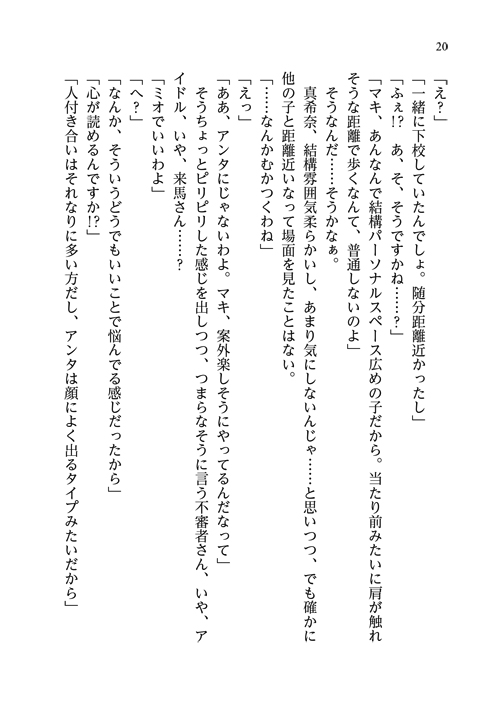 20
「え？」
「一緒に下校していたんでしょ。随分距離近かったし」
「ふぇ!?　あ、そ、そうですかね……？」
「マキ、あんなんで結構パーソナルスペース広めの子だから。当たり前みたいに肩が触れ
そうな距離で歩くなんて、普通しないのよ」
そうなんだ……そうかなぁ。
真希奈、結構雰囲気柔らかいし、あまり気にしないんじゃ……と思いつつ、でも確かに
他の子と距離近いなって場面を見たことはない。
「……なんかむかつくわね」
「えっ」
「ああ、アンタにじゃないわよ。マキ、案外楽しそうにやってるんだなって」
そうちょっとピリピリした感じを出しつつ、つまらなそうに言う不審者さん、いや、ア
イドル、いや、来馬さん……？
「ミオでいいわよ」
「へ？」
「なんか、そういうどうでもいいことで悩んでる感じだったから」
「心が読めるんですか!?」
「人付き合いはそれなりに多い方だし、アンタは顔によく出るタイプみたいだから」